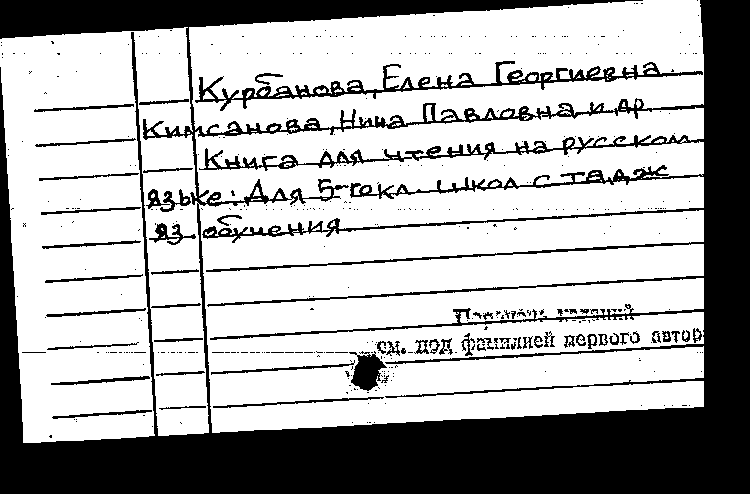 Курбанова, Елена Георгиевна.
Кимсанова, Нина Павловна и др.
Книга для чтения на русском
языке: Для 5-го кл. школ с тадж.
яз. обучения.
Перечень изданий
см. под фамилией первого автор